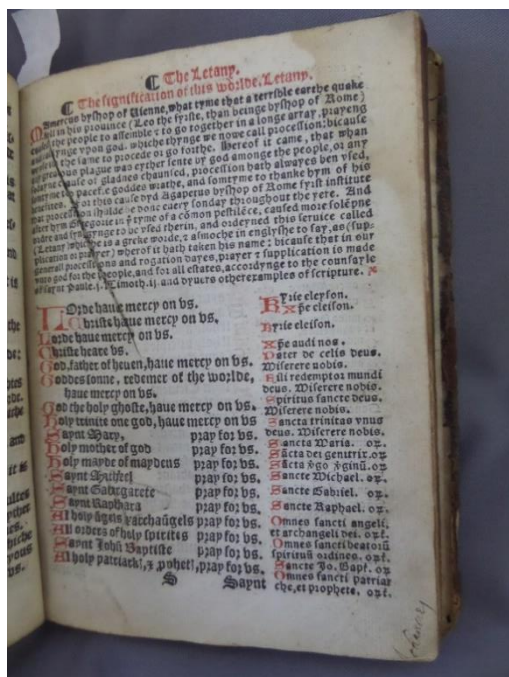 ¶ The Letany.
¶ The signification of this worlde, Letany.
MAmercus byshop of Uienne, what tyme that a terrible earthe quake
fell in his prouince (Leo the fyrste, than beinge byshop of Rome)
the people to assemble & to go together in a longe array, prayeng
vpon god. whiche thynge we nowe call procession: bicause
the same to procede or go forthe. Hereof it came, that whan
great plague was eyther sente by god amonge the people, or any
cause of gladnes chaunsed, procession hath alwayes ben vsed,
to pacefie goddes wrathe, and somtyme to thanke hym of his
benefites. For this cause dyd Agaperus byshop of Rome fyrst institute
that procession shulde be done euery sonday throughout the yere. And
after hym Gregorie in ye tyme of a cōmon pestilēce, caused more solēpne
ordre and to be vsed therin, and ordeyned this seruice called
(Letany whiche is a greke worde, & asmoche in englyshe to say, as (sup-
plication or prayer) wherof it hath taken his name: bicause that in our
generall processions and rogation dayes, prayer & supplication is made
vnto god for the people, and for all estates, accordynge to the counsayle
of saynt Paule. j. Timoth. ij. and dyuers other examples of scripture.
LOrde haue mercy on vs.
Christe haue mercy on vs.
Lorde haue mercy on vs.
Christe heare vs.
God, father of heuen, haue mercy on vs.
Goddes sonne, redemer of the worlde,
haue mercy on vs.
God the holy ghoste, haue mercy on vs.
Holy trinite one god, haue mercy on vs.
Saynt Mary, pray for vs.
Holy mother of god pray for vs.
Holy mayde of maydens pray for vs.
Saynt pray for vs.
Saynt pray for vs.
Saynt pray for vs.
Al holy āgels & archaūgels pray for vs.
Al orders of holy spirites pray for vs.
Saynt Johñ Baptiste pray for vs.
Al holy patriark!, & , pray for vs.
S Saynt
KYrie eleyson.
Xpē eleison.
Kyrie eleison.
Xpē audi nos.
Pater de celis deus.
Miserere nobis.
Fili redemptor mundi
deus. Miserere nobis.
Spiritus sancte deus.
Miserere nobis.
Sancta trinitas vnus
deus. Miserere nobis.
Sancta Maria. oꝝ.
Sācta dei genitrix. oꝝ
Sācta v̄go v̄ginū. oꝝ
Sancte Michael. oꝝ.
Sancte Gabriel. oꝝ.
Sancte Raphael. oꝝ.
Omnes sancti angeli,
et archangeli dei. oꝝ.
Omnes sancti beatorū
spirituū ordines. oꝝ.
Sancte Jo. Bapt. oꝝ.
Omnes sancti patriar
che, et prophete. oꝝ.